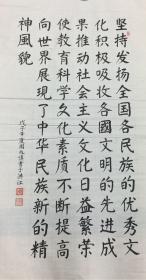 坚持发扬全国各民族的优秀文
化积极吸收各国文明的先进成
果推动社会主义文化日益繁荣
使教育科学文化素质不断提高
向世界展现了中华民族新的精
神風貌
戊子年夏周